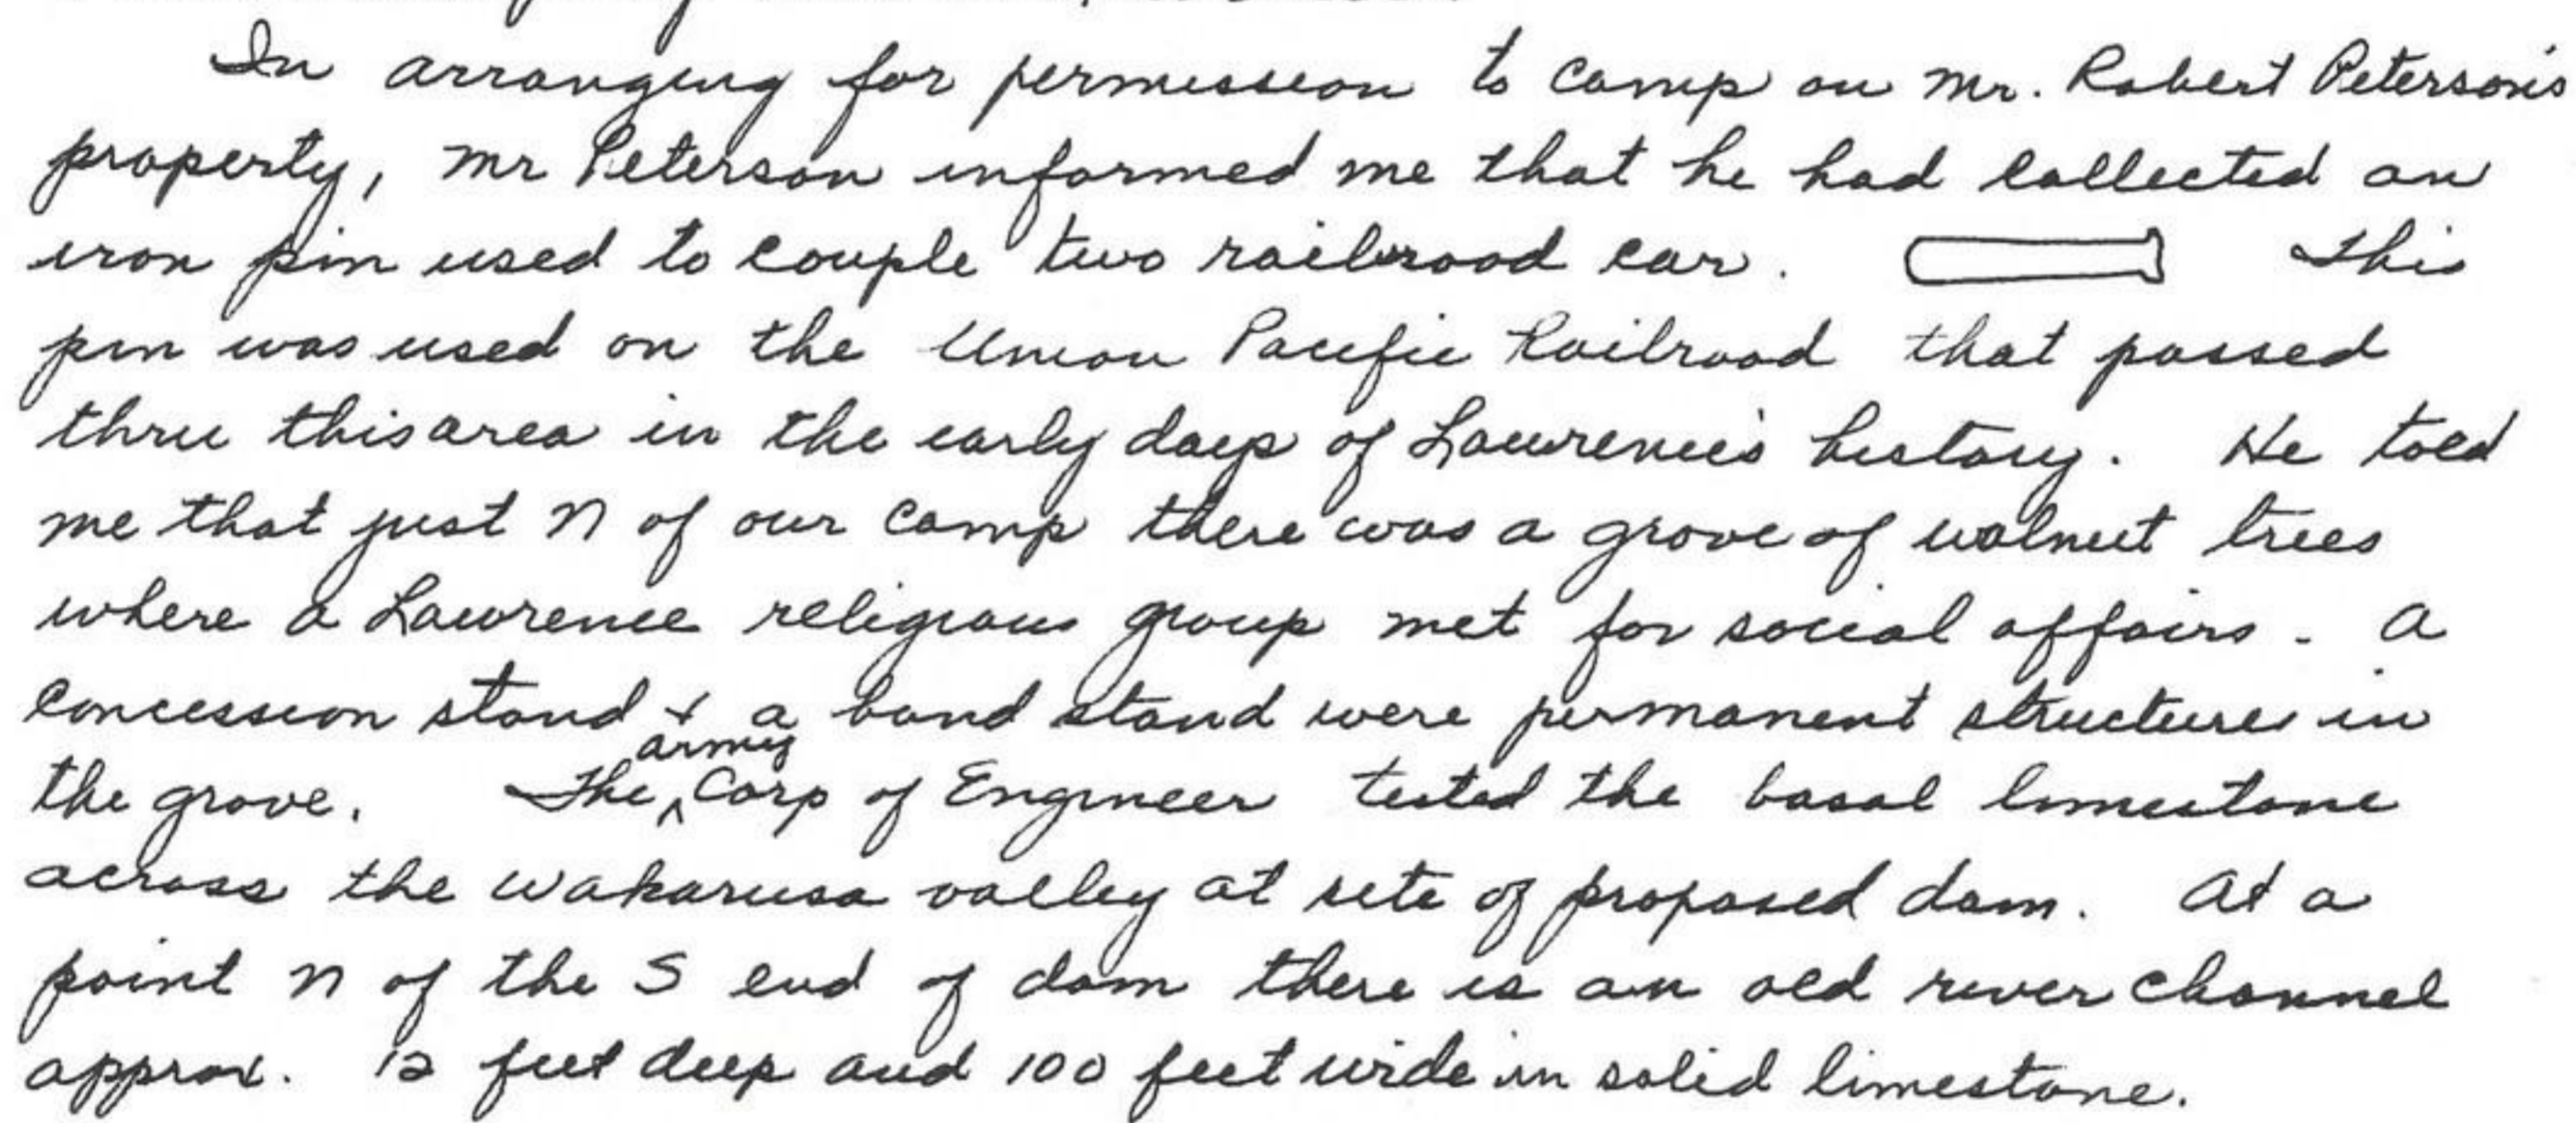 In arranging for permission to camp on Mr. Robert Peterson's
property, Mr Peterson informed me that he had collected an
iron pin used to couple two railroad car. This
pin was used on the Union Pacific Railroad that passed
thru this area in the early days of Lawrence's history. He told
me that just N of our camp there was a grove of walnut trees
where a Lawrence religious group met for social affairs. A
concession stand & a band stand were permanent structures in
the grove. The army Corp of Engineer tested the basal limestone
across the Wakarusa valley at site of proposed dam. At a
point N of the S end of dam there is an old river channel
approx. 12 feet deep and 100 feet wide in solid limestone.